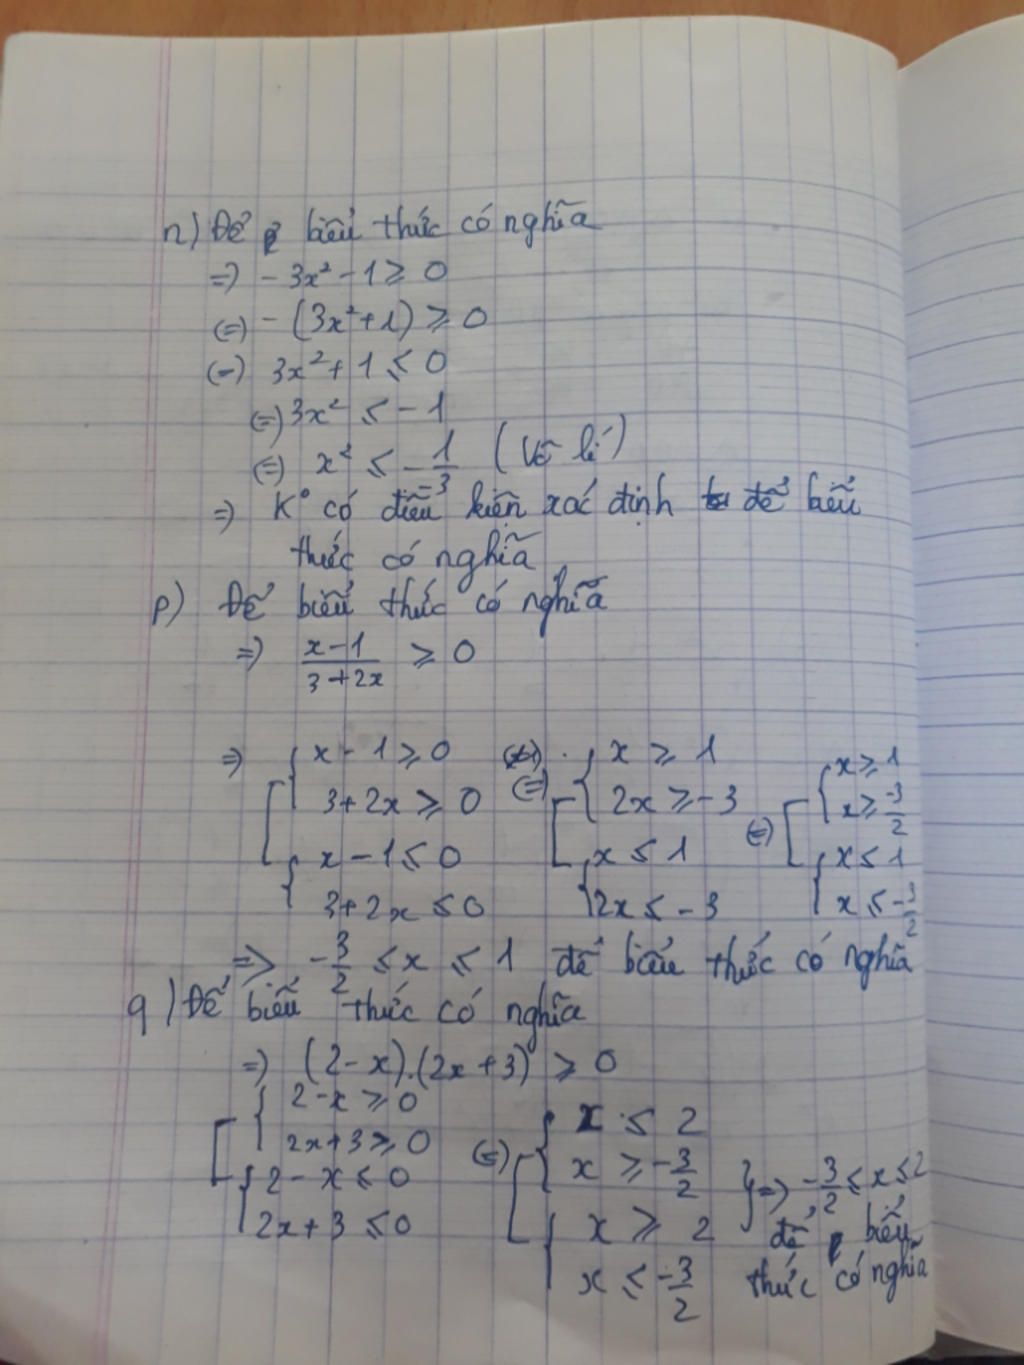 n) Để biểu thức có nghĩa
=) - 3x² - 1 ≥ 0
(=) - (3x² + 1) ≥ 0
(=) 3x² + 1 ≤ 0
(=) 3x² ≤ - 1
(=) x² ≤ - 1/3 (Vô lí)
=) K° có điều kiện xác định để biểu
thức có nghĩa
p) Để biểu thức có nghĩa
=) (x - 1)/(3 + 2x) ≥ 0
=) [ { x - 1 ≥ 0 (=) [ { x ≥ 1 (=) [ { x ≥ 1
3 + 2x ≥ 0 2x ≥ - 3 x ≥ -3/2
{ x - 1 ≤ 0 { x ≤ 1 { x ≤ 1
3 + 2x ≤ 0 2x ≤ - 3 x ≤ -3/2
=> -3/2 ≤ x ≤ 1 để biểu thức có nghĩa
q) Để biểu thức có nghĩa
=) (2 - x).(2x + 3) ≥ 0
[ { 2 - x ≥ 0 (=) [ { x ≤ 2
2x + 3 ≥ 0 x ≥ -3/2 } =) -3/2 ≤ x ≤ 2
{ 2 - x ≤ 0 { x ≥ 2 để biểu
2x + 3 ≤ 0 x ≤ -3/2 thức có nghĩa